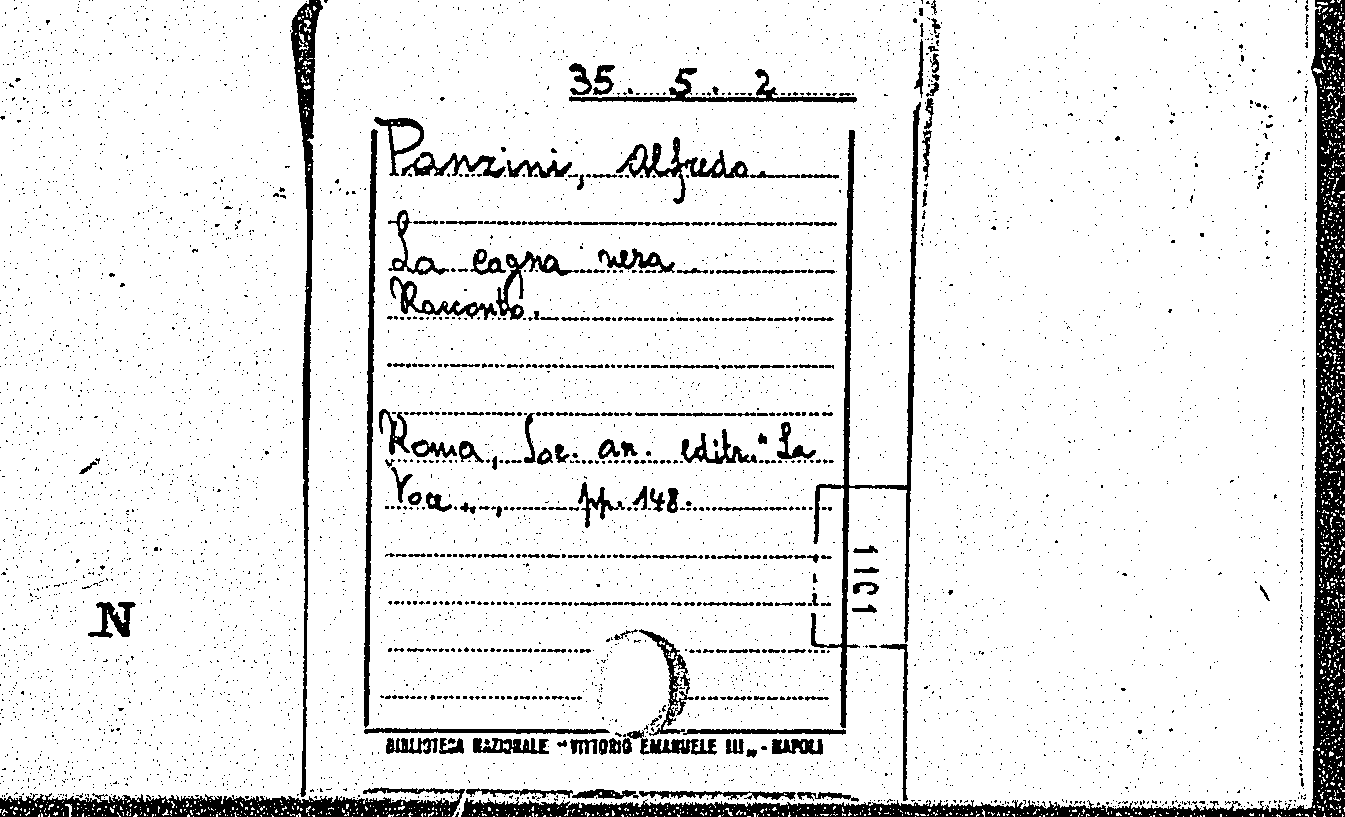 35. 5. 2
Panzini, Alfredo.
La cagna nera
Racconto.
Roma, Soc. an. editr. "La
Voce „, pp. 148.
1101
N
BIBLIOTECA NAZIONALE "VITTORIO EMANUELE III„ - NAPOLI